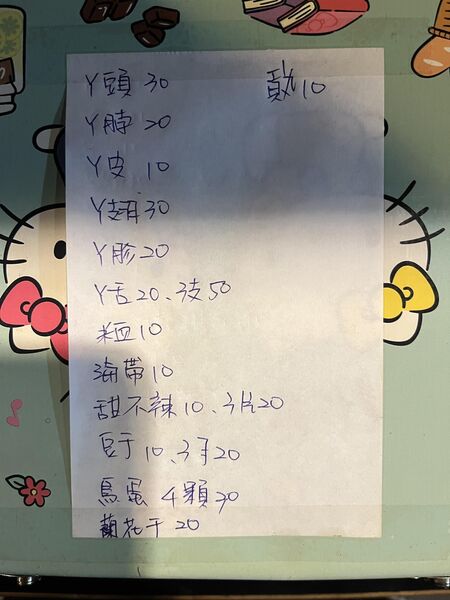 丫頭 30
貢丸 10
丫脖 20
丫皮 10
丫翅 30
丫胗 20
丫舌 20、3支 50
米血 10
海帶 10
甜不辣 10、3片 20
豆干 10、3 20
鳥蛋 4顆 20
蘭花干 20